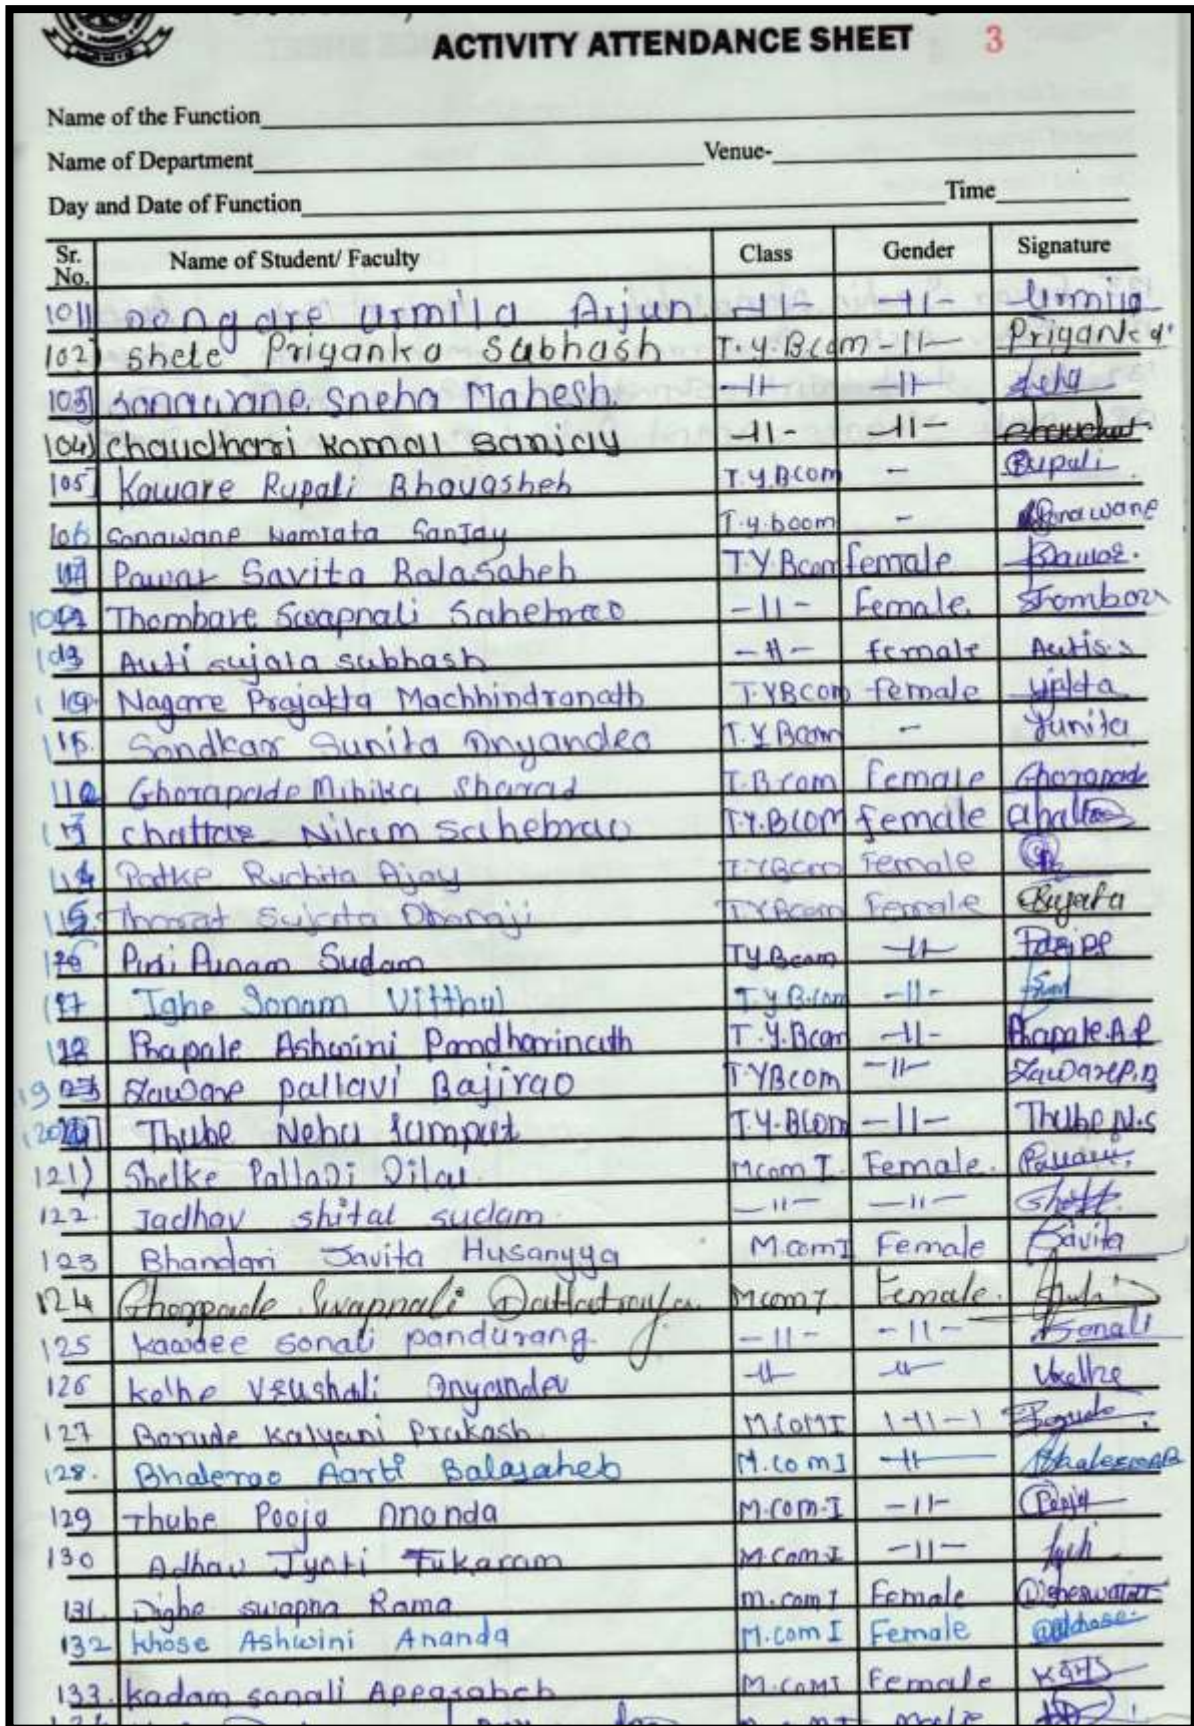 ACTIVITY ATTENDANCE SHEET 3
Name of the Function
Name of Department Venue-
Day and Date of Function Time
Sr. No. Name of Student/ Faculty Class Gender Signature
101] Dongare Urmila Arjun -11- -11- Urmila
102] Shele Priyanka Subhash T.Y.B.Com -11- Priyanka
103] Sonawane Sneha Mahesh. -11- -11-
104) Chaudhari Komal Sanjay -11- -11-
105] Kaware Rupali Bhausaheb T.Y.BCom - Rupali
106 Sonawane Namrata Sanjay T.y.bcom - Sonawane
Pawar Savita Balasaheb T.Y.Bcom female Pawar.
Thombare Swapnali Sahebrao -11- Female.
Auti sujata subhash -11- female Autis.s
Nagare Prajakta Machhindranath T.YBcom female
Sondkar Sunita Dnyandeo T.Y.Bcom - Sunita
112 Ghorapade Mihika Sharad T.B.com female Ghorapade
Chattar Nilam Sahebrao T.Y.BCOM female
114 Patke Ruchita Ajay T.YBcom female
115. Thorat Sujata Dhanaji T.YBcom Female Sujata
Puri Punam Sudam T.Y.Bcom -11-
117 Ighe Sonam Vitthal T.Y.B.com -11-
118 Phapale Ashwini Pandharinath T.Y.Bcom -11- Phapale.A.P
Zaware pallavi Bajirao T.YBcom -11- Zaware P.B
120 Thube Neha Sampat T.Y.BCom -11- Thube N.S
121) Shelke Pallavi Dilap Mcom I. Female.
122. Jadhav shital sudam -11- -11-
123 Bhandari Savita Husanyya M.com I Female Savita
124 Ghorpade Swapnali Dattatraya. Mcom I. Female.
125 kawdee sonali pandurang -11- -11- Sonali
126 kolhe Vrushali Dnyandev -11- -11- Vkolhe
127 Borude Kalyani Prakash M.COM I 1-11-1 Borude
128. Bhalerao Aarti Balasaheb M.com I -11- BhaleraoAB
129 Thube Pooja Ananda M.com-I -11- Pooja
130 Adhav Jyoti Tukaram M.Com-I -11-
131. Dighe swapna Rama m.com I Female
132 khose Ashwini Ananda M.com I Female
133. kadam sonali Appasaheb M.COM I Female